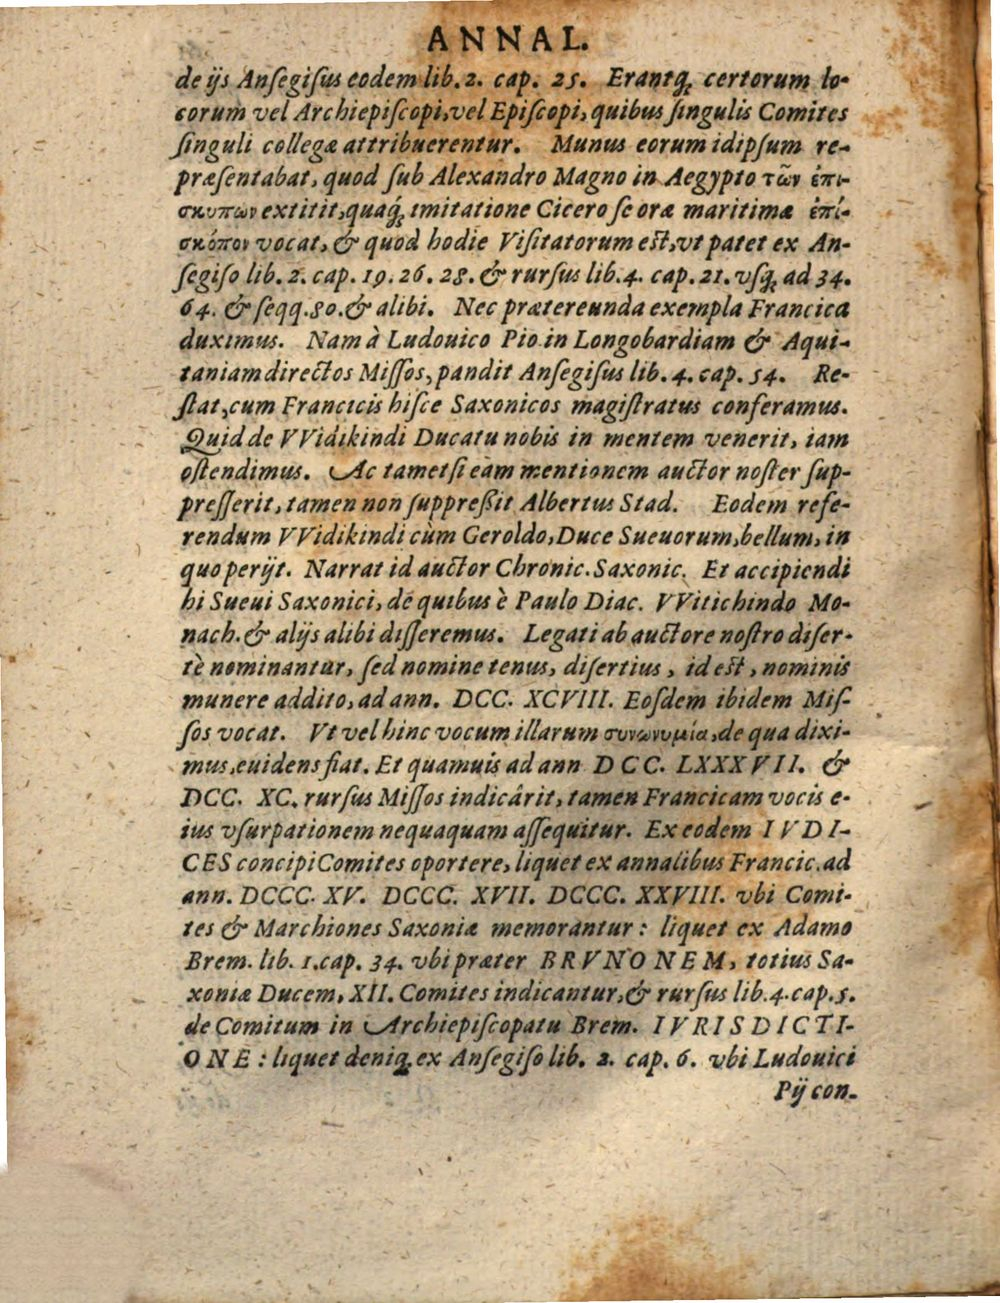 ANNAL.
de ijs Anſegiſus eodem lib. 2. cap. 25. Erantq́; certorum lo-
corum vel Archiepiſcopi, vel Epiſcopi, quibus ſingulis Comites
ſinguli collegæ attribuerentur. Munus eorum idipſum re-
præſentabat, quod ſub Alexandro Magno in Aegypto τῶν ἐπι-
σκυπων extitit, quaq́; imitatione Cicero ſe oræ maritimæ ἐπί-
σκόπον vocat, & quod hodie Viſitatorum eſt, vt patet ex An-
ſegiſo lib. 2. cap. 19. 26. 28. & rurſus lib. 4. cap. 21. vſq́; ad 34.
64. & ſeqq. 80. & alibi. Nec prætereunda exempla Francica
duximus. Nam à Ludouico Pio in Longobardiam & Aqui-
taniam directos Miſſos, pandit Anſegiſus lib. 4. cap. 54. Re-
ſtat, cum Francicis hiſce Saxonicos magiſtratus conferamus.
Quid de VVidikindi Ducatu nobis in mentem venerit, iam
oſtendimus. Ac tametſi eam mentionem auctor noſter ſup-
preſſerit, tamen non ſuppreßit Albertus Stad. Eodem refe-
rendum VVidikindi cùm Geroldo, Duce Sueuorum, bellum, in
quo perijt. Narrat id auctor Chronic. Saxonic. Et accipiendi
hi Sueui Saxonici, de quibus è Paulo Diac. VVitichindo Mo-
nach. & alijs alibi diſſeremus. Legati ab auctore noſtro diſer-
tè nominantur, ſed nomine tenus, diſertius, id eſt, nominis
munere addito, ad ann. DCC. XCVIII. Eoſdem ibidem Miſ-
ſos vocat. Vt vel hinc vocum illarum συνωνυμία, de qua dixi-
mus, euidens fiat. Et quamuis ad ann DCC. LXXXVII. &
DCC. XC. rurſus Miſſos indicârit, tamen Francicam vocis e-
ius vſurpationem nequaquam aſſequitur. Ex eodem IVDI-
CES concipi Comites oportere, liquet ex annalibus Francic. ad
ann. DCCC. XV. DCCC. XVII. DCCC. XXVIII. vbi Comi-
tes & Marchiones Saxoniæ memorantur: liquet ex Adamo
Brem. lib. 1. cap. 34. vbi præter BRVNONEM, totius Sa-
xoniæ Ducem, XII. Comites indicantur, & rurſus lib. 4. cap. 5.
de Comitum in Archiepiſcopatu Brem. IVRISDICTI-
ONE: liquet deniq; ex Anſegiſo lib. 2. cap. 6. vbi Ludouici
Pij con-